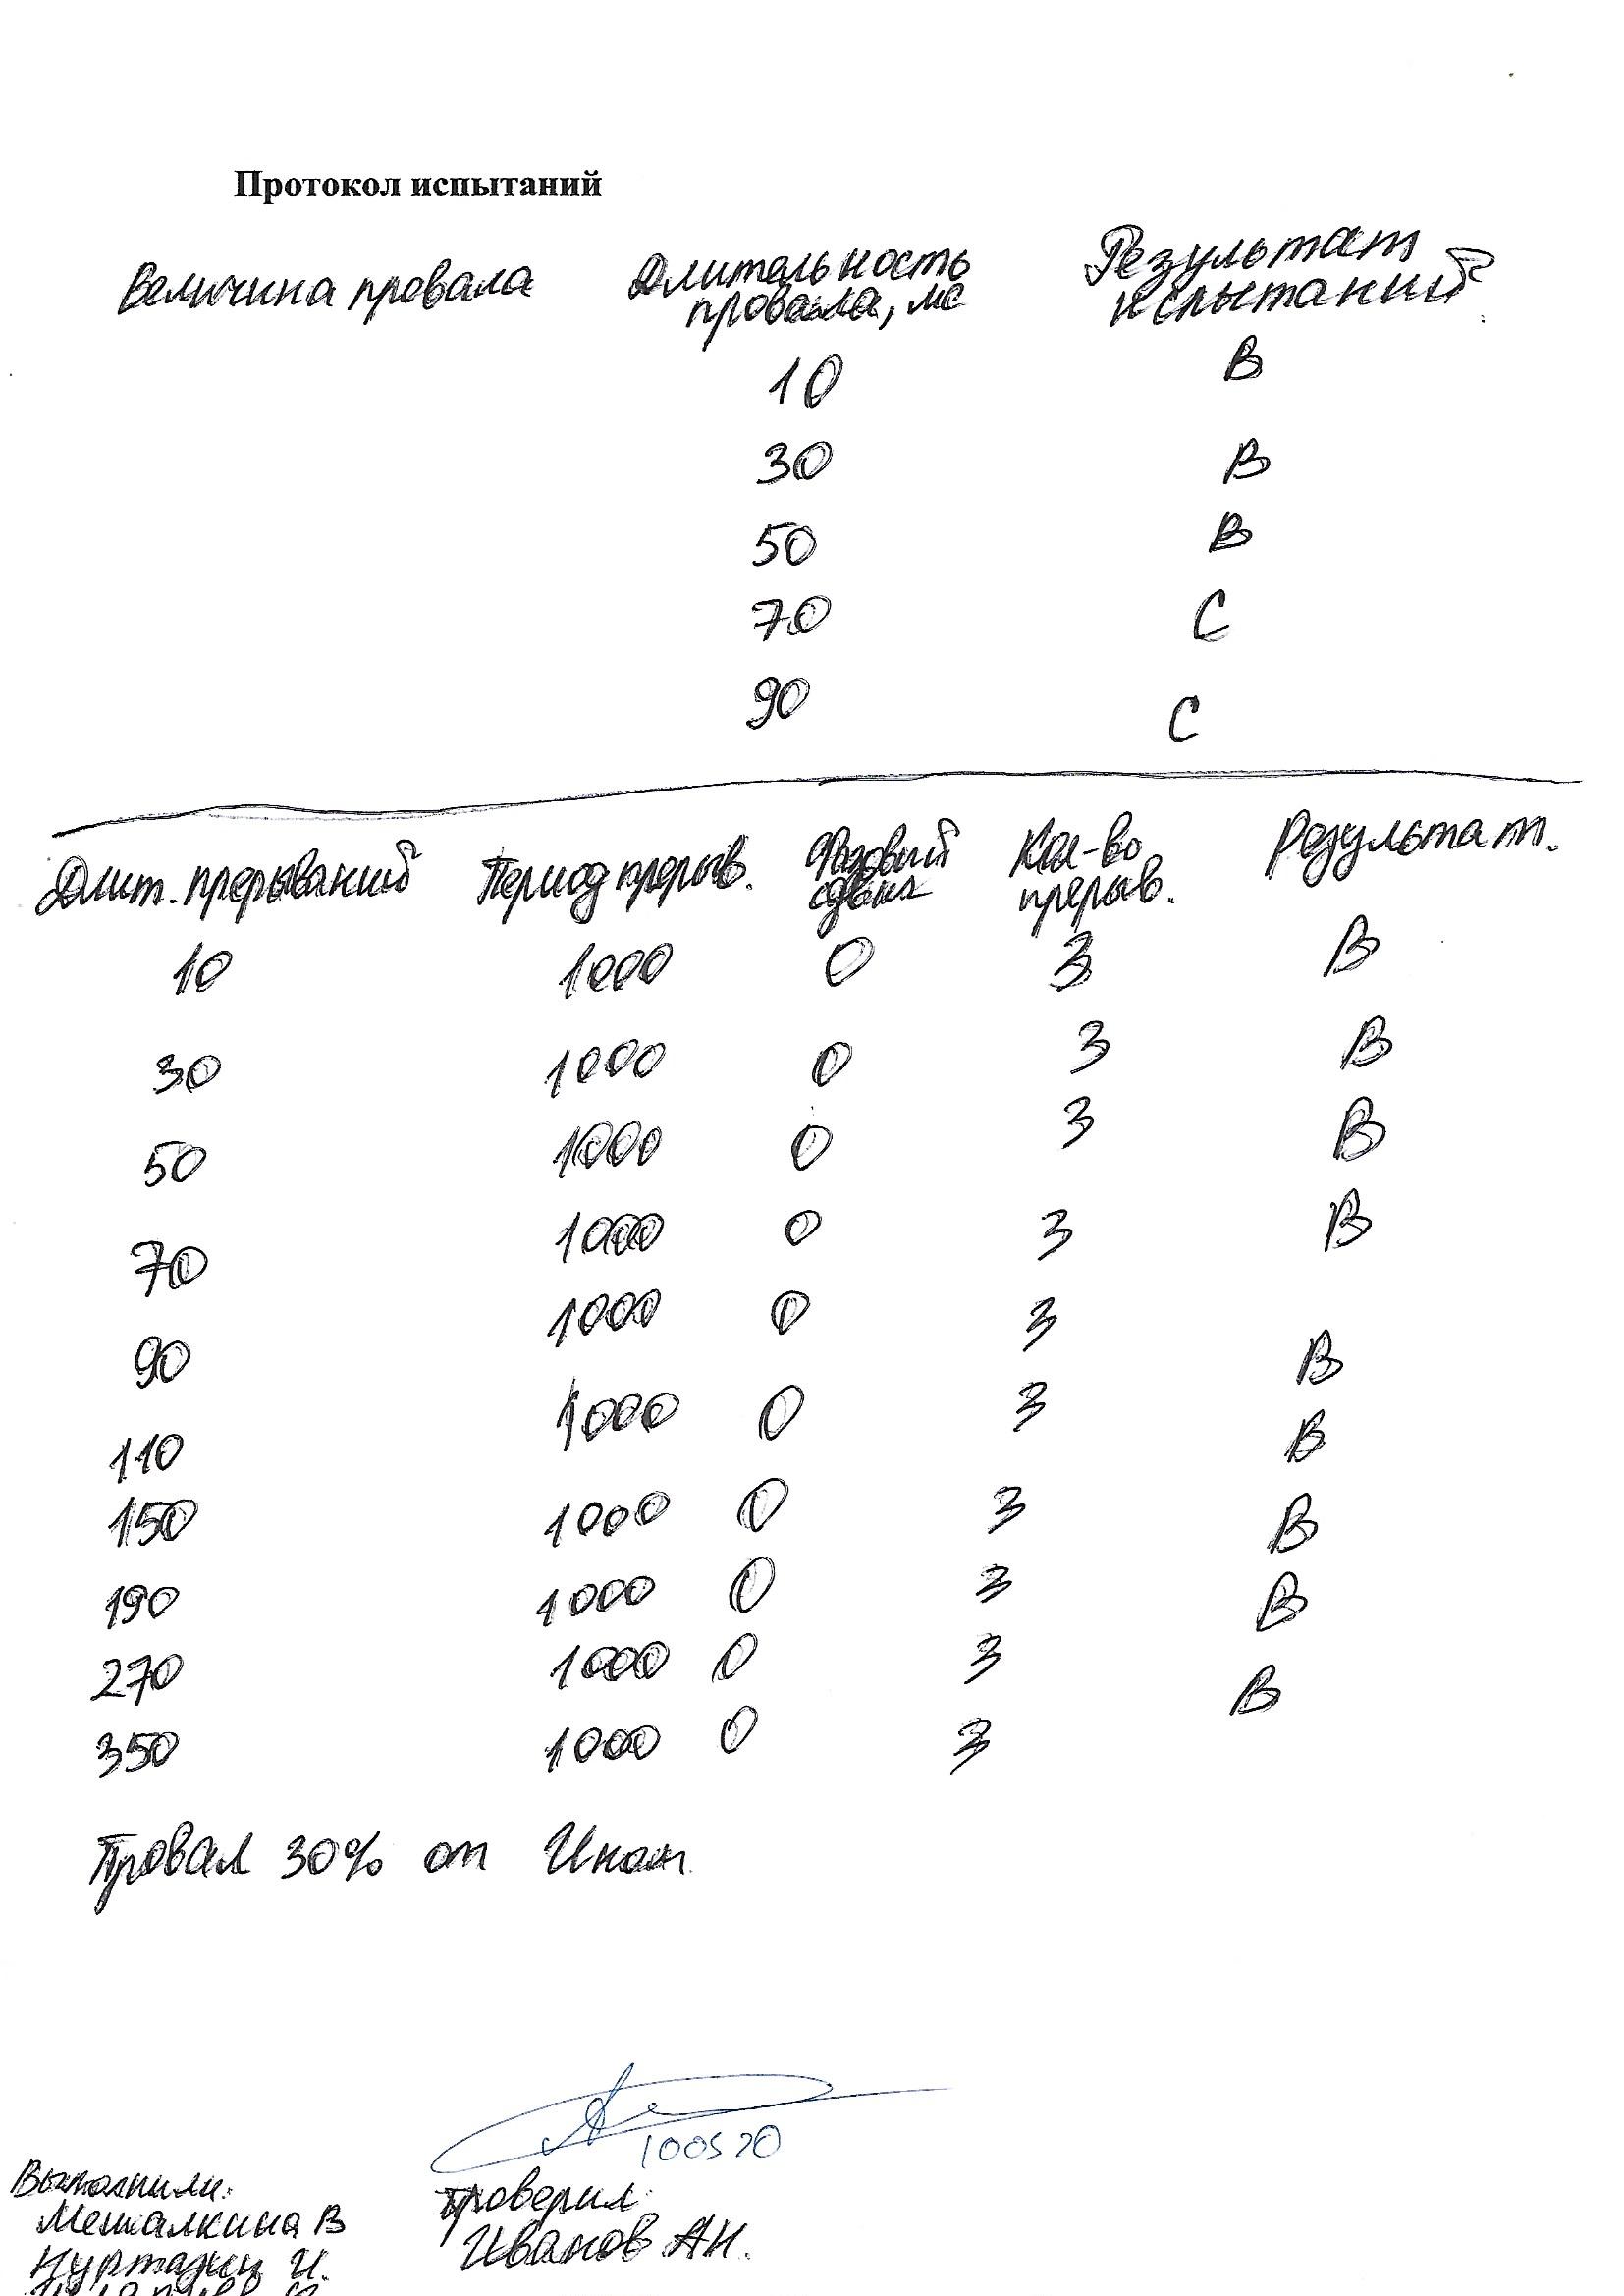 Протокол испытаний
Величина провала Длительность провала, мс Результат испытаний
10 В
30 В
50 В
70 С
90 С
Длит. прерываний Период прерыв. Фазовый сдвиг Кол-во прерыв. Результат.
10 1000 0 3 В
30 1000 0 3 В
50 1000 0 3 В
70 1000 0 3 В
90 1000 0 3 В
110 1000 0 3 В
150 1000 0 3 В
190 1000 0 3 В
270 1000 0 3 В
350 1000 0 3
Провал 30% от Uном
100520
Выполнили: Проверил:
Мешалкина В Иванов А.Н.
И.